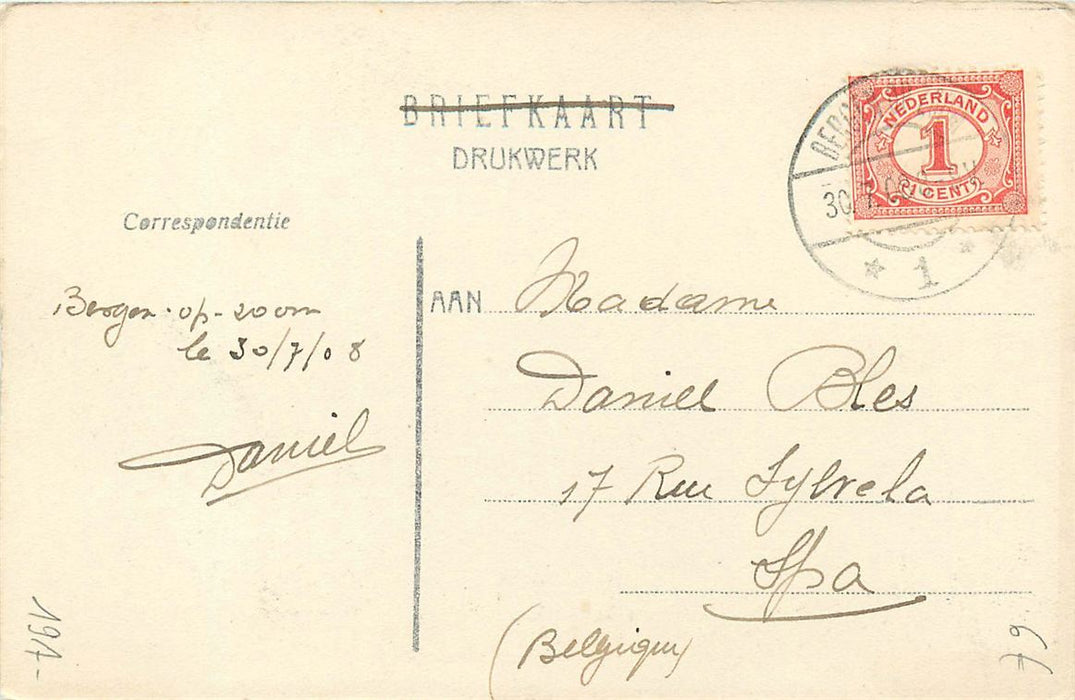 BRIEFKAART
DRUKWERK
NEDERLAND
1
1 CENT
30.7.08
1
Correspondentie
Bergen-op-zoom
le 30/7/08
Daniel
AAN Madame
Daniel Bles
17 Rue Sylvela
Spa
(Belgique)
79